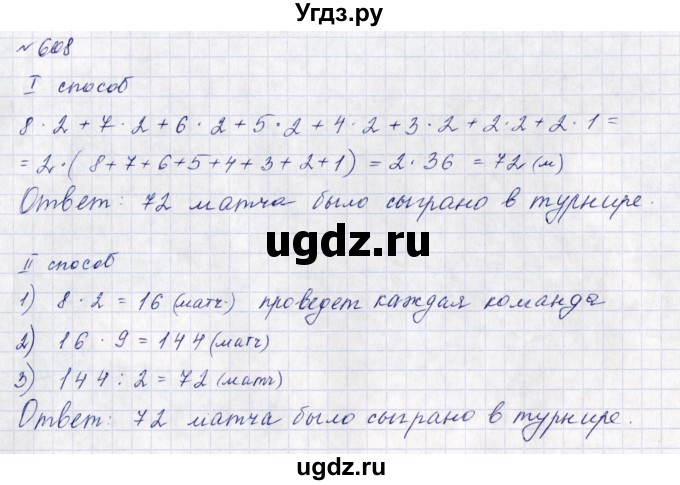 Угдз.ру
№608
I способ
8·2+7·2+6·2+5·2+4·2+3·2+2·2+2·1=
=2·(8+7+6+5+4+3+2+1)=2·36=72(м)
Ответ: 72 матча было сыграно в турнире.
ugdz.ru
II способ
1) 8·2=16(матч.) проведет каждая команда
2) 16·9=144(матч)
3) 144:2=72(матч)
Ответ: 72 матча было сыграно в турнире.
ugdz.ru